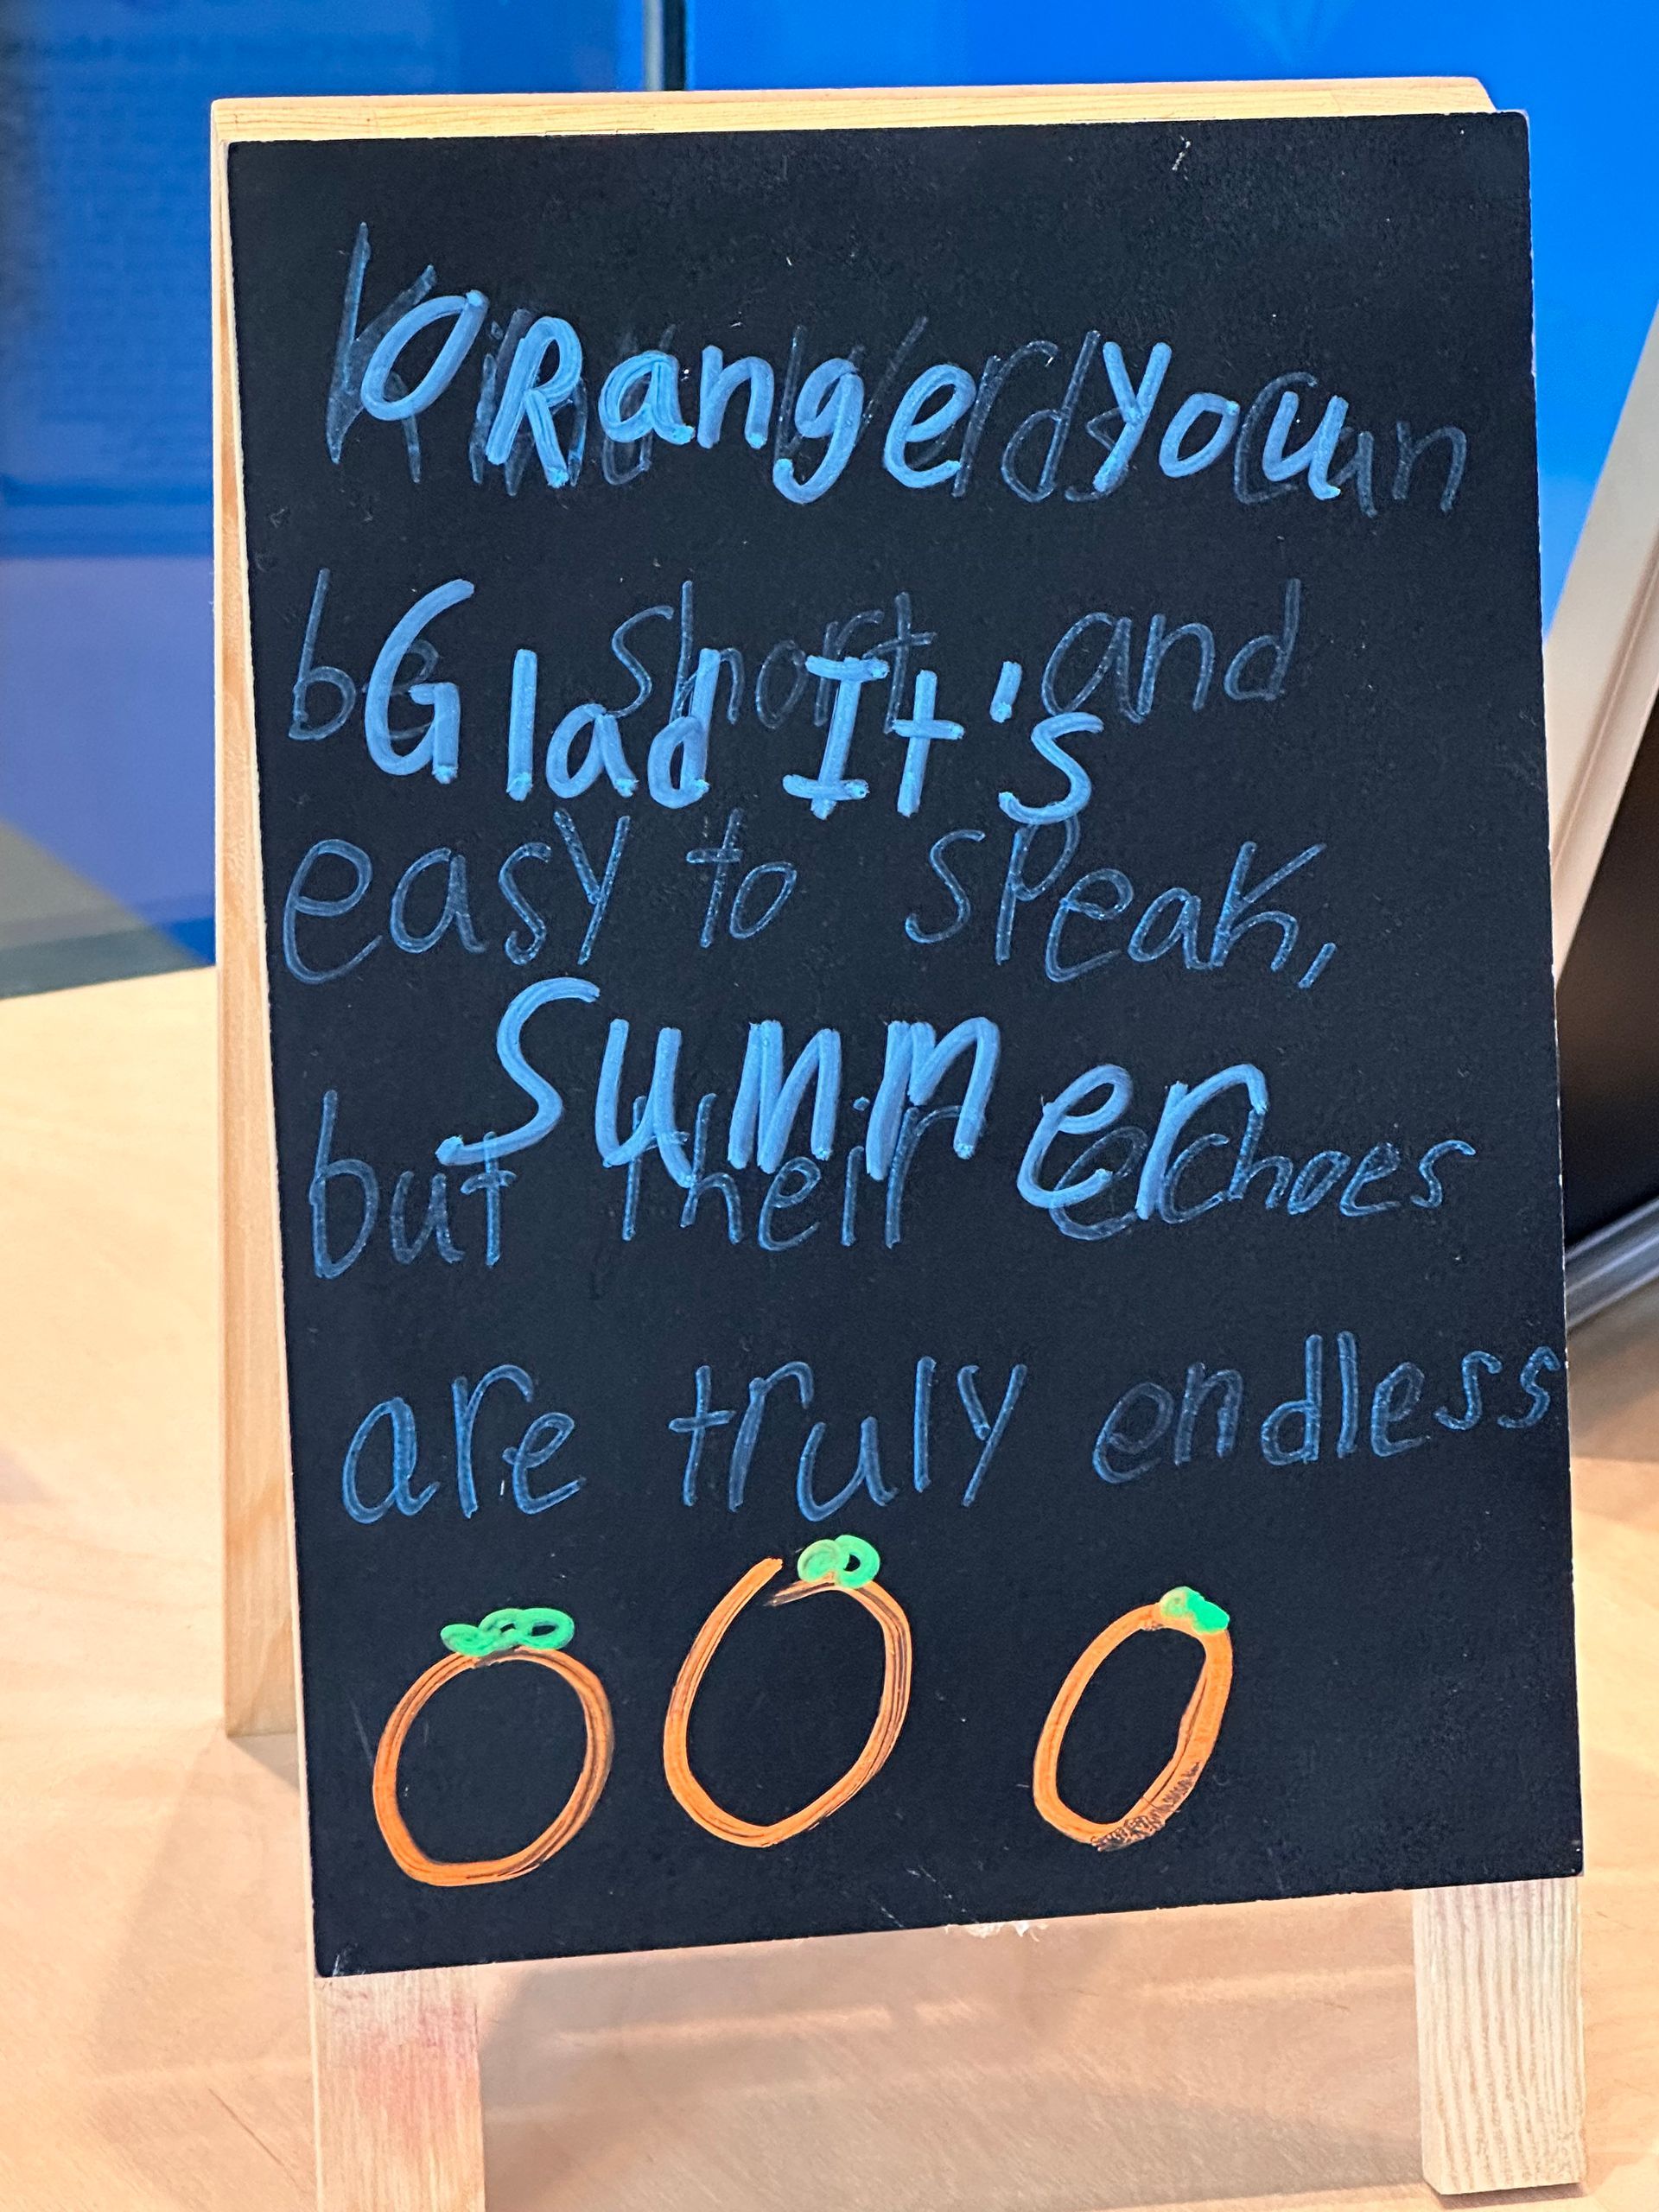 ORange you
Glad It's
Summer
Kind Words Can
be short and
easy to speak,
but their echoes
are truly endless